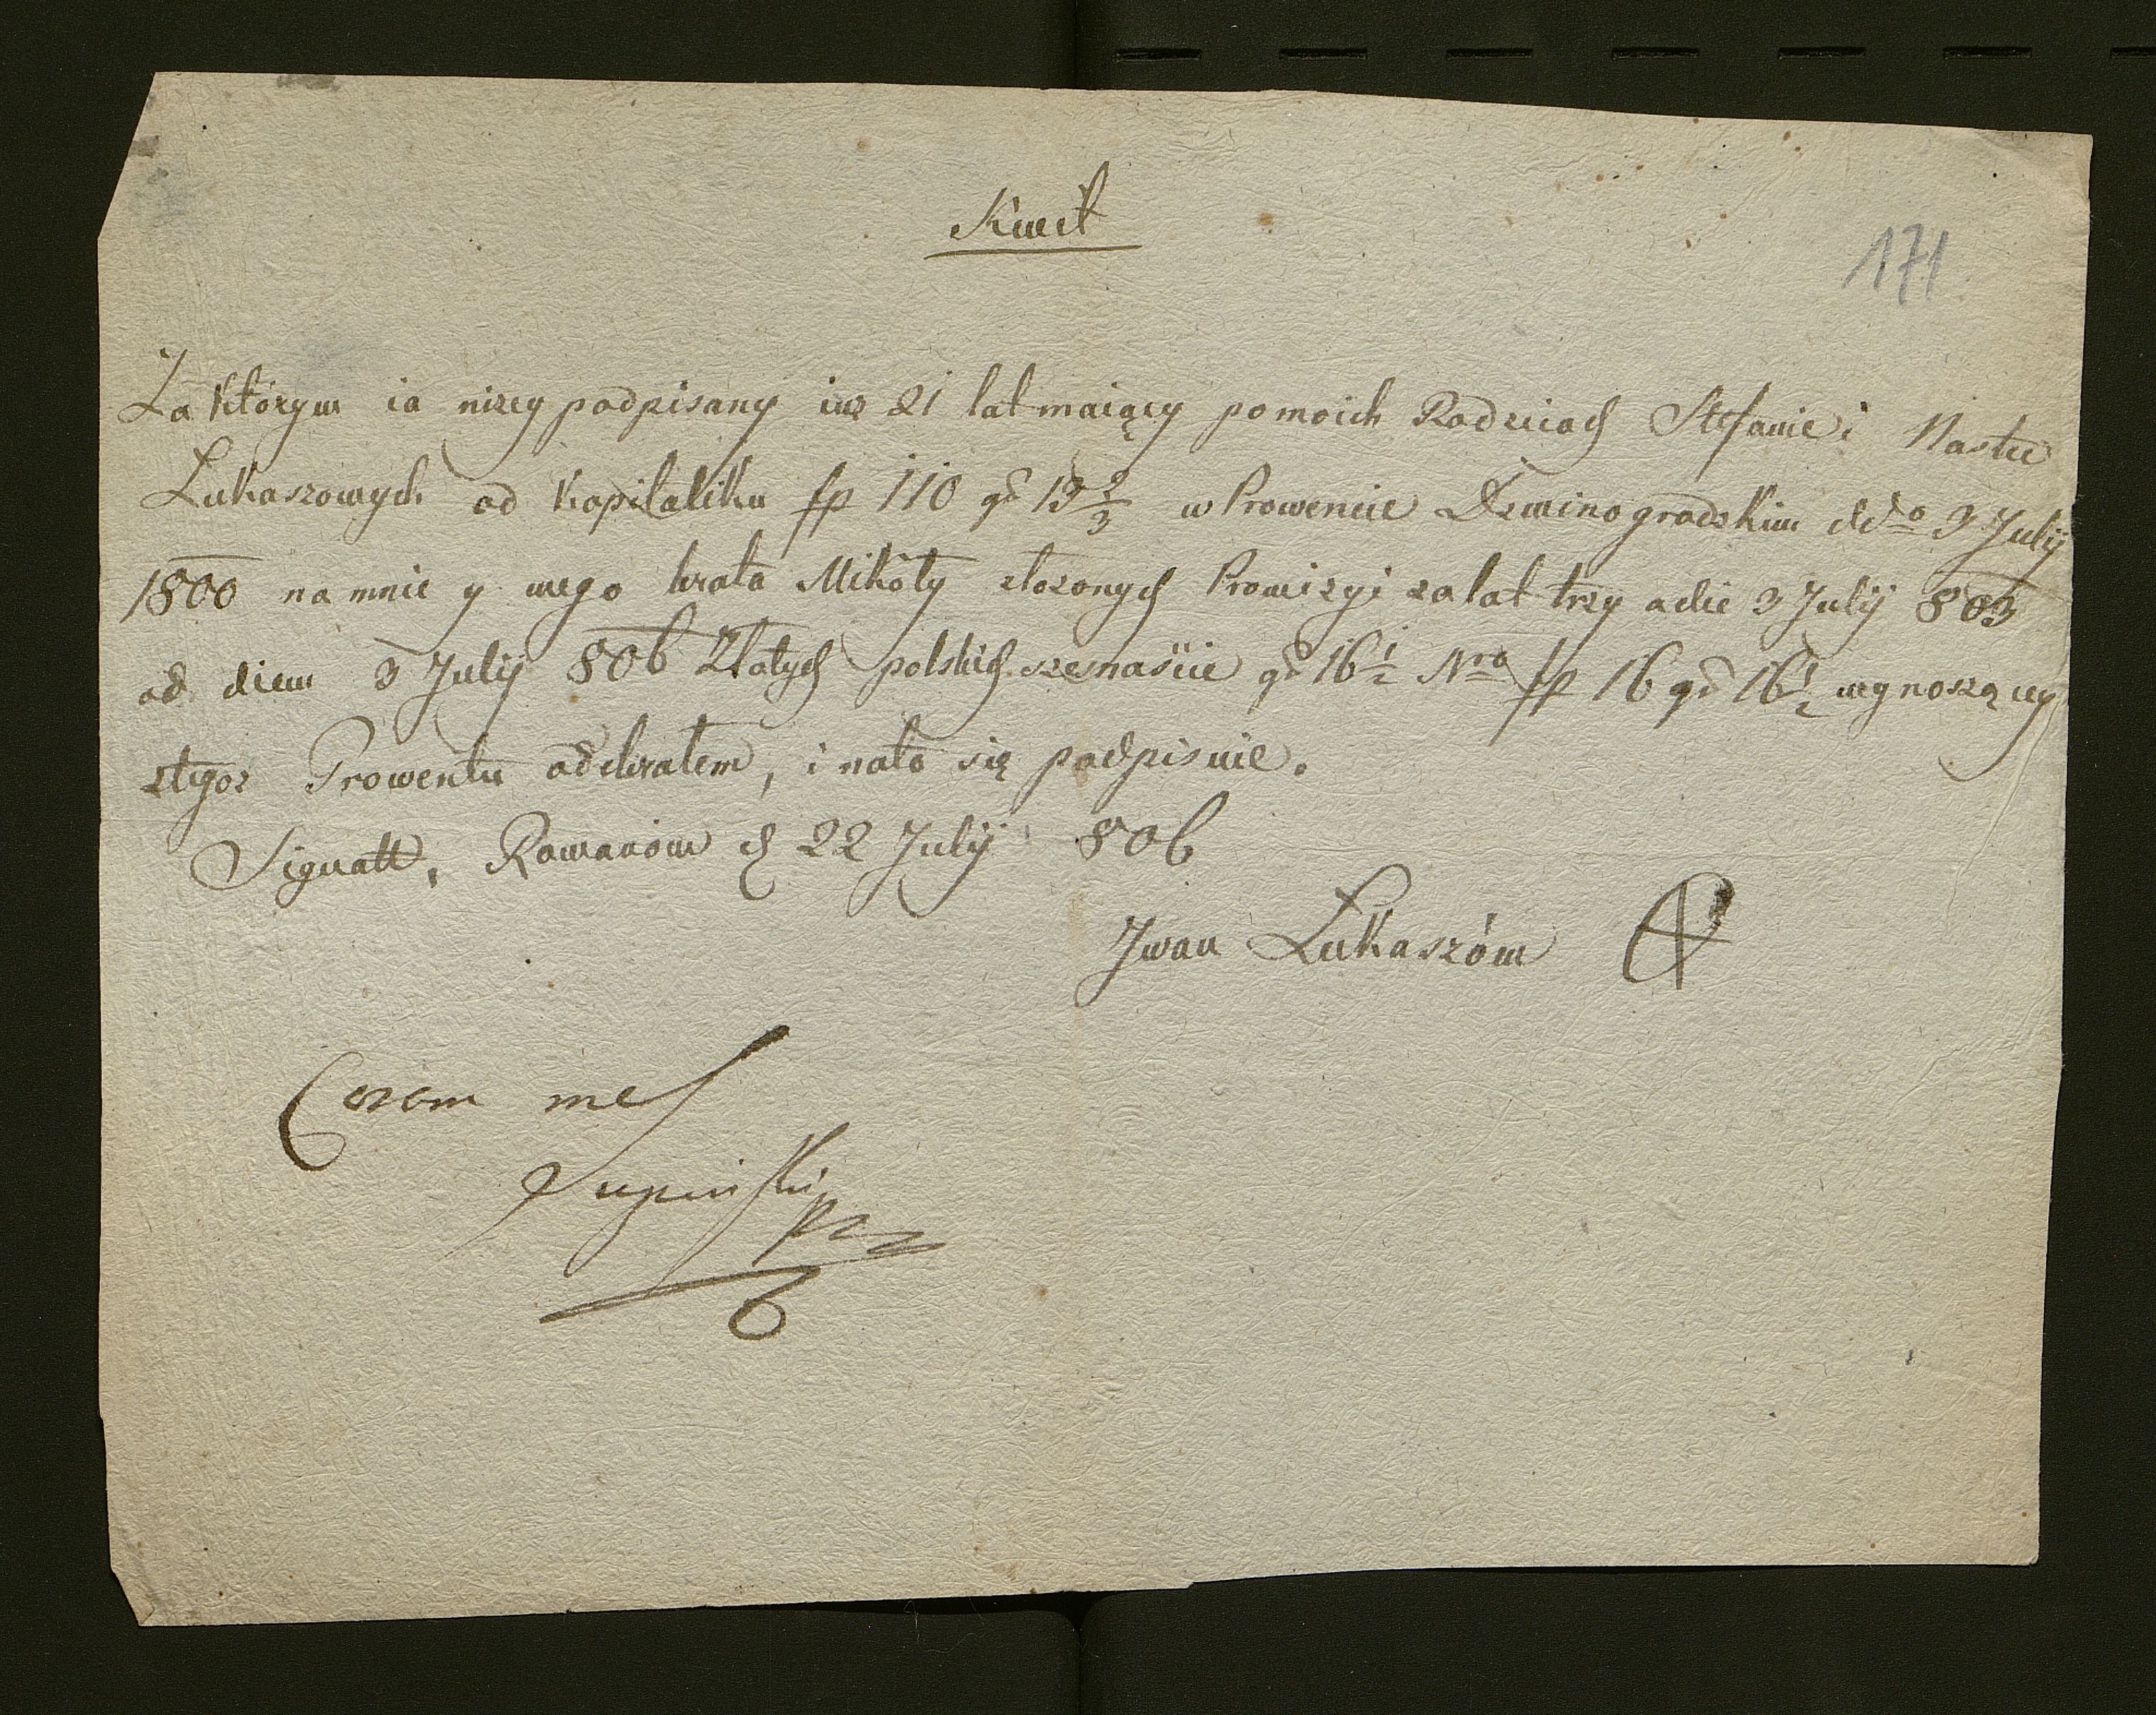 Kwit
171
Za którym ia niżey podpisany iuż 21 lat maiący po moich Rodzicach Stefanie i Nastce
Łukaszowych od Kapitaliku fp 110 gr 13 2/3 w Prowencie Dzwinogrodzkim ddto 3 July
1800 na mnie y mego brata Mikoły złożonych Prowizyi za lat trzy a die 3 July 803
ad diem 3 July 806 Złotych polskich szesnaście gr 16 1/2 Nro fp 16 gr 16 1/2 wynoszącey
z tegoż Prowentu odebrałem, i na to się podpisuie.
Signatt. Romanów d 22 July 806
Iwan Łukaszów
Coram me